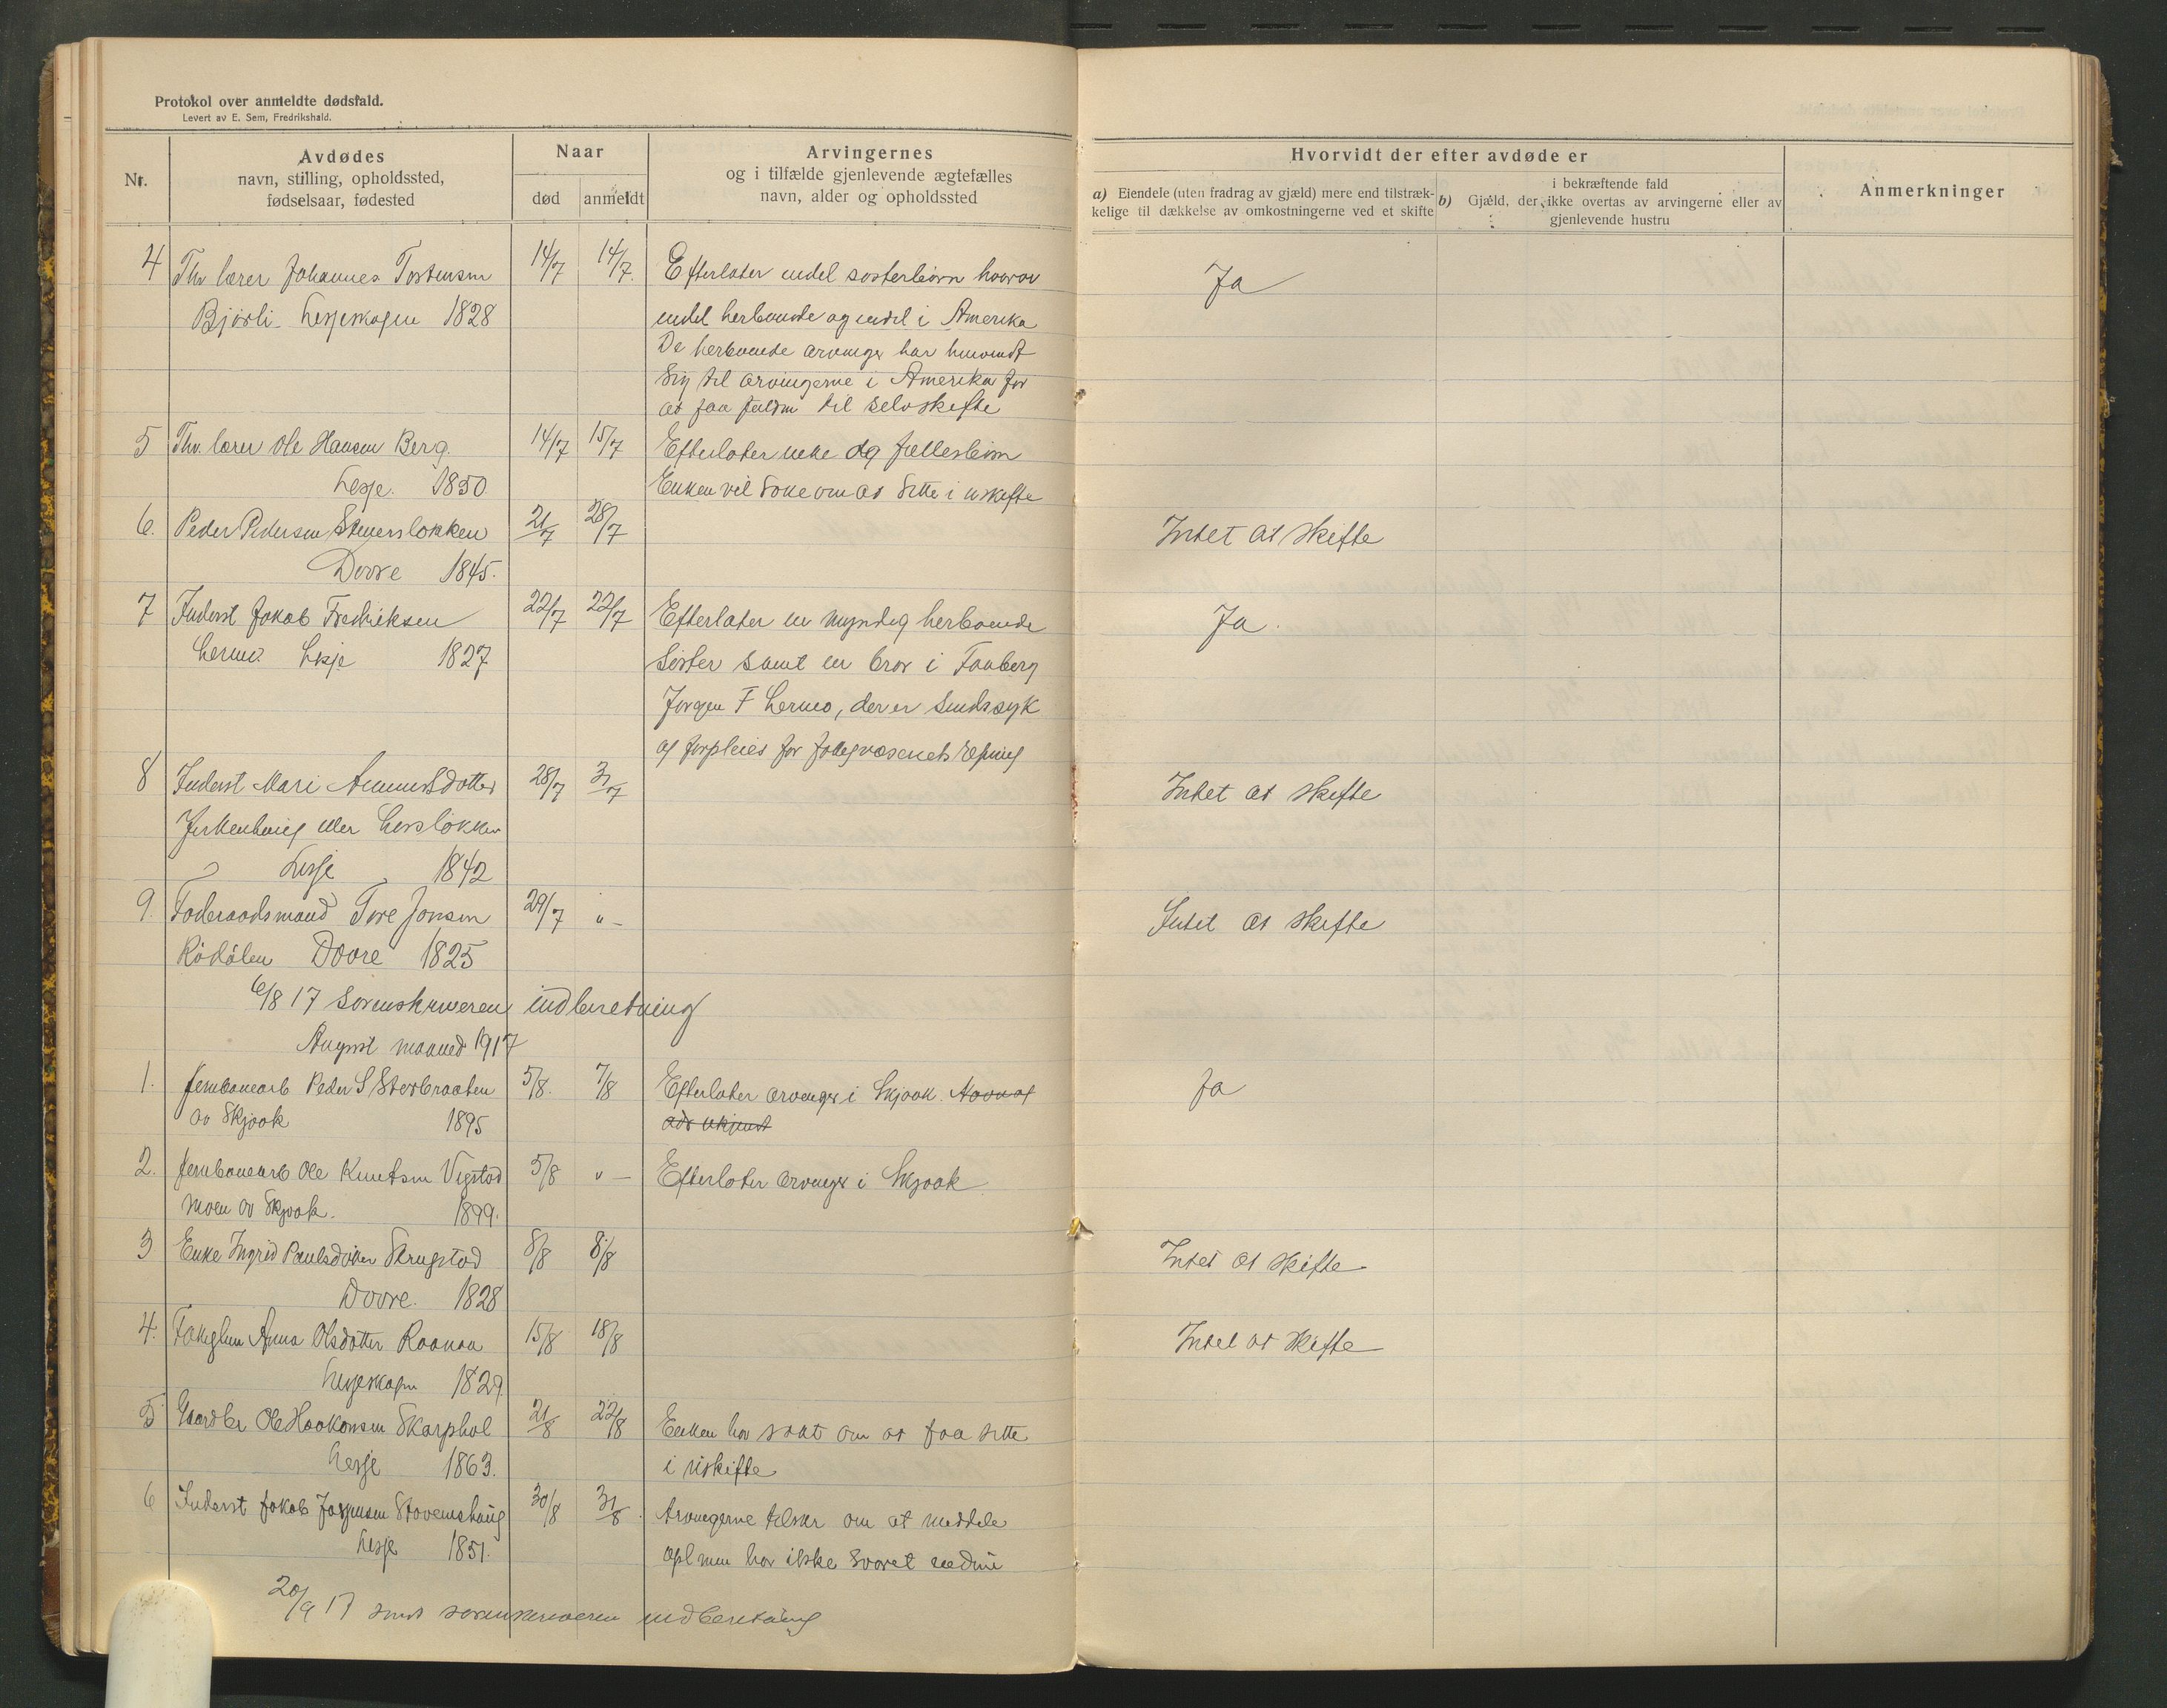 Protokol over anmeldte dødsfald.
Levert av E. Sem, Fredrikshald.
Nr.
Avdødes
navn, stilling, opholdssted,
fødselsaar, fødested
Naar
død
anmeldt
Arvingernes
og i tilfælde gjenlevende ægtefælles
navn, alder og opholdssted
Hvorvidt der efter avdøde er
a) Eiendele (uten fradrag av gjæld) mere end tilstræk-
kelige til dækkelse av omkostningerne ved et skifte
i bekræftende fald
b) Gjæld, der ikke overtas av arvingerne eller av
gjenlevende hustru
Anmerkninger
4 Thv lærer Johannes Tostensen 14/7 14/7. Efterlater endel søsterbørn hvorav Ja
Bjørli Lesjeskogen 1828 endel herboende og endel i Amerika
De herboende arvinger har henvendt
sig til arvingerne i Amerika for
at faa fuldm til selvskifte
5 Thv. lærer Ole Hansen Berg. 14/7 15/7 Efterlater enke og fællesbørn
Lesje. 1850 Enken vil søke om at sitte i uskifte
6. Peder Pedersen Stenersløkken 21/7 28/7 Intet at skifte
Dovre 1845.
7 Inderst Jakob Fredriksen 22/7 22/7 Efterlater en myndig herboende Ja.
Lermo Lesje 1827 søster samt en bror i Faaberg
Jørgen F Lermo, der er sindssyk
og forpleies for fattigvæsenets regning
8 Inderst Mari Amundsdotter 28/7 31/7 Intet at skifte
eller
Lesje 1842
9. Føderaadsmand Tore Jonsen 29/7 " - Intet at skifte
Dovre 1825
6/8 17 Sorenskriveren indberetning
August maaned 1917
1. Jernbanearb Peder S Storbraaten 5/8. 7/8 Efterlater arvinger i Skjaak. Navn og Ja
av Skjaak 1895 adr ukjent
2. Jernbanearb Ole Knutsen Vigstad 5/8 " - Efterlater arvinger i Skjaak
moen av Skjaak. 1899.
3 Enke Ingrid Paulsdotter Skrugstad 8/8 8/8 Intet at skifte
Dovre. 1828
4. Anna Olsdotter Raanaa 15/8 18/8 Intet at skifte
Lesjeskogen 1829
5 Gaardbr Ole Haakonsen Skarphol 21/8 22/8 Enken har søkt om at faa sitte
Lesje 1863. i uskifte
6 Inderst Jakob Jørgensen Stovernshaug 30/8 31/8 Arvingerne tilskr om at meddele
Lesje 1851. opl men har ikke svaret
20/9 17 sendt sorenskriveren indberetning